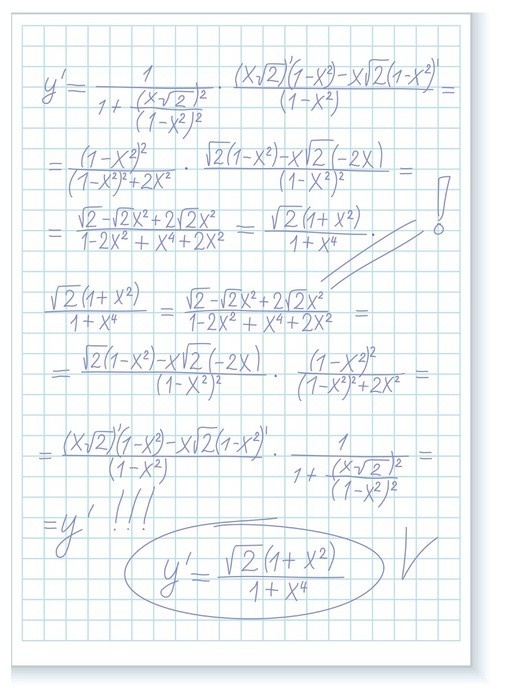 y' = 1/(1 + (x√2)²/(1-x²)²) · ((x√2)'(1-x²) - x√2(1-x²)')/(1-x²) =
= (1-x²)²/((1-x²)²+2x²) · (√2(1-x²) - x√2(-2x))/(1-x²)² =
= (√2 - √2x² + 2√2x²)/(1-2x² + x⁴ + 2x²) = √2(1+x²)/(1+x⁴). !
√2(1+x²)/(1+x⁴) = (√2 - √2x² + 2√2x²)/(1-2x² + x⁴ + 2x²) =
= (√2(1-x²) - x√2(-2x))/(1-x²)² · (1-x²)²/((1-x²)²+2x²) =
= ((x√2)'(1-x²) - x√2(1-x²)')/(1-x²) · 1/(1 + (x√2)²/(1-x²)²) =
= y' !!!!
y' = √2(1+x²)/(1+x⁴) V